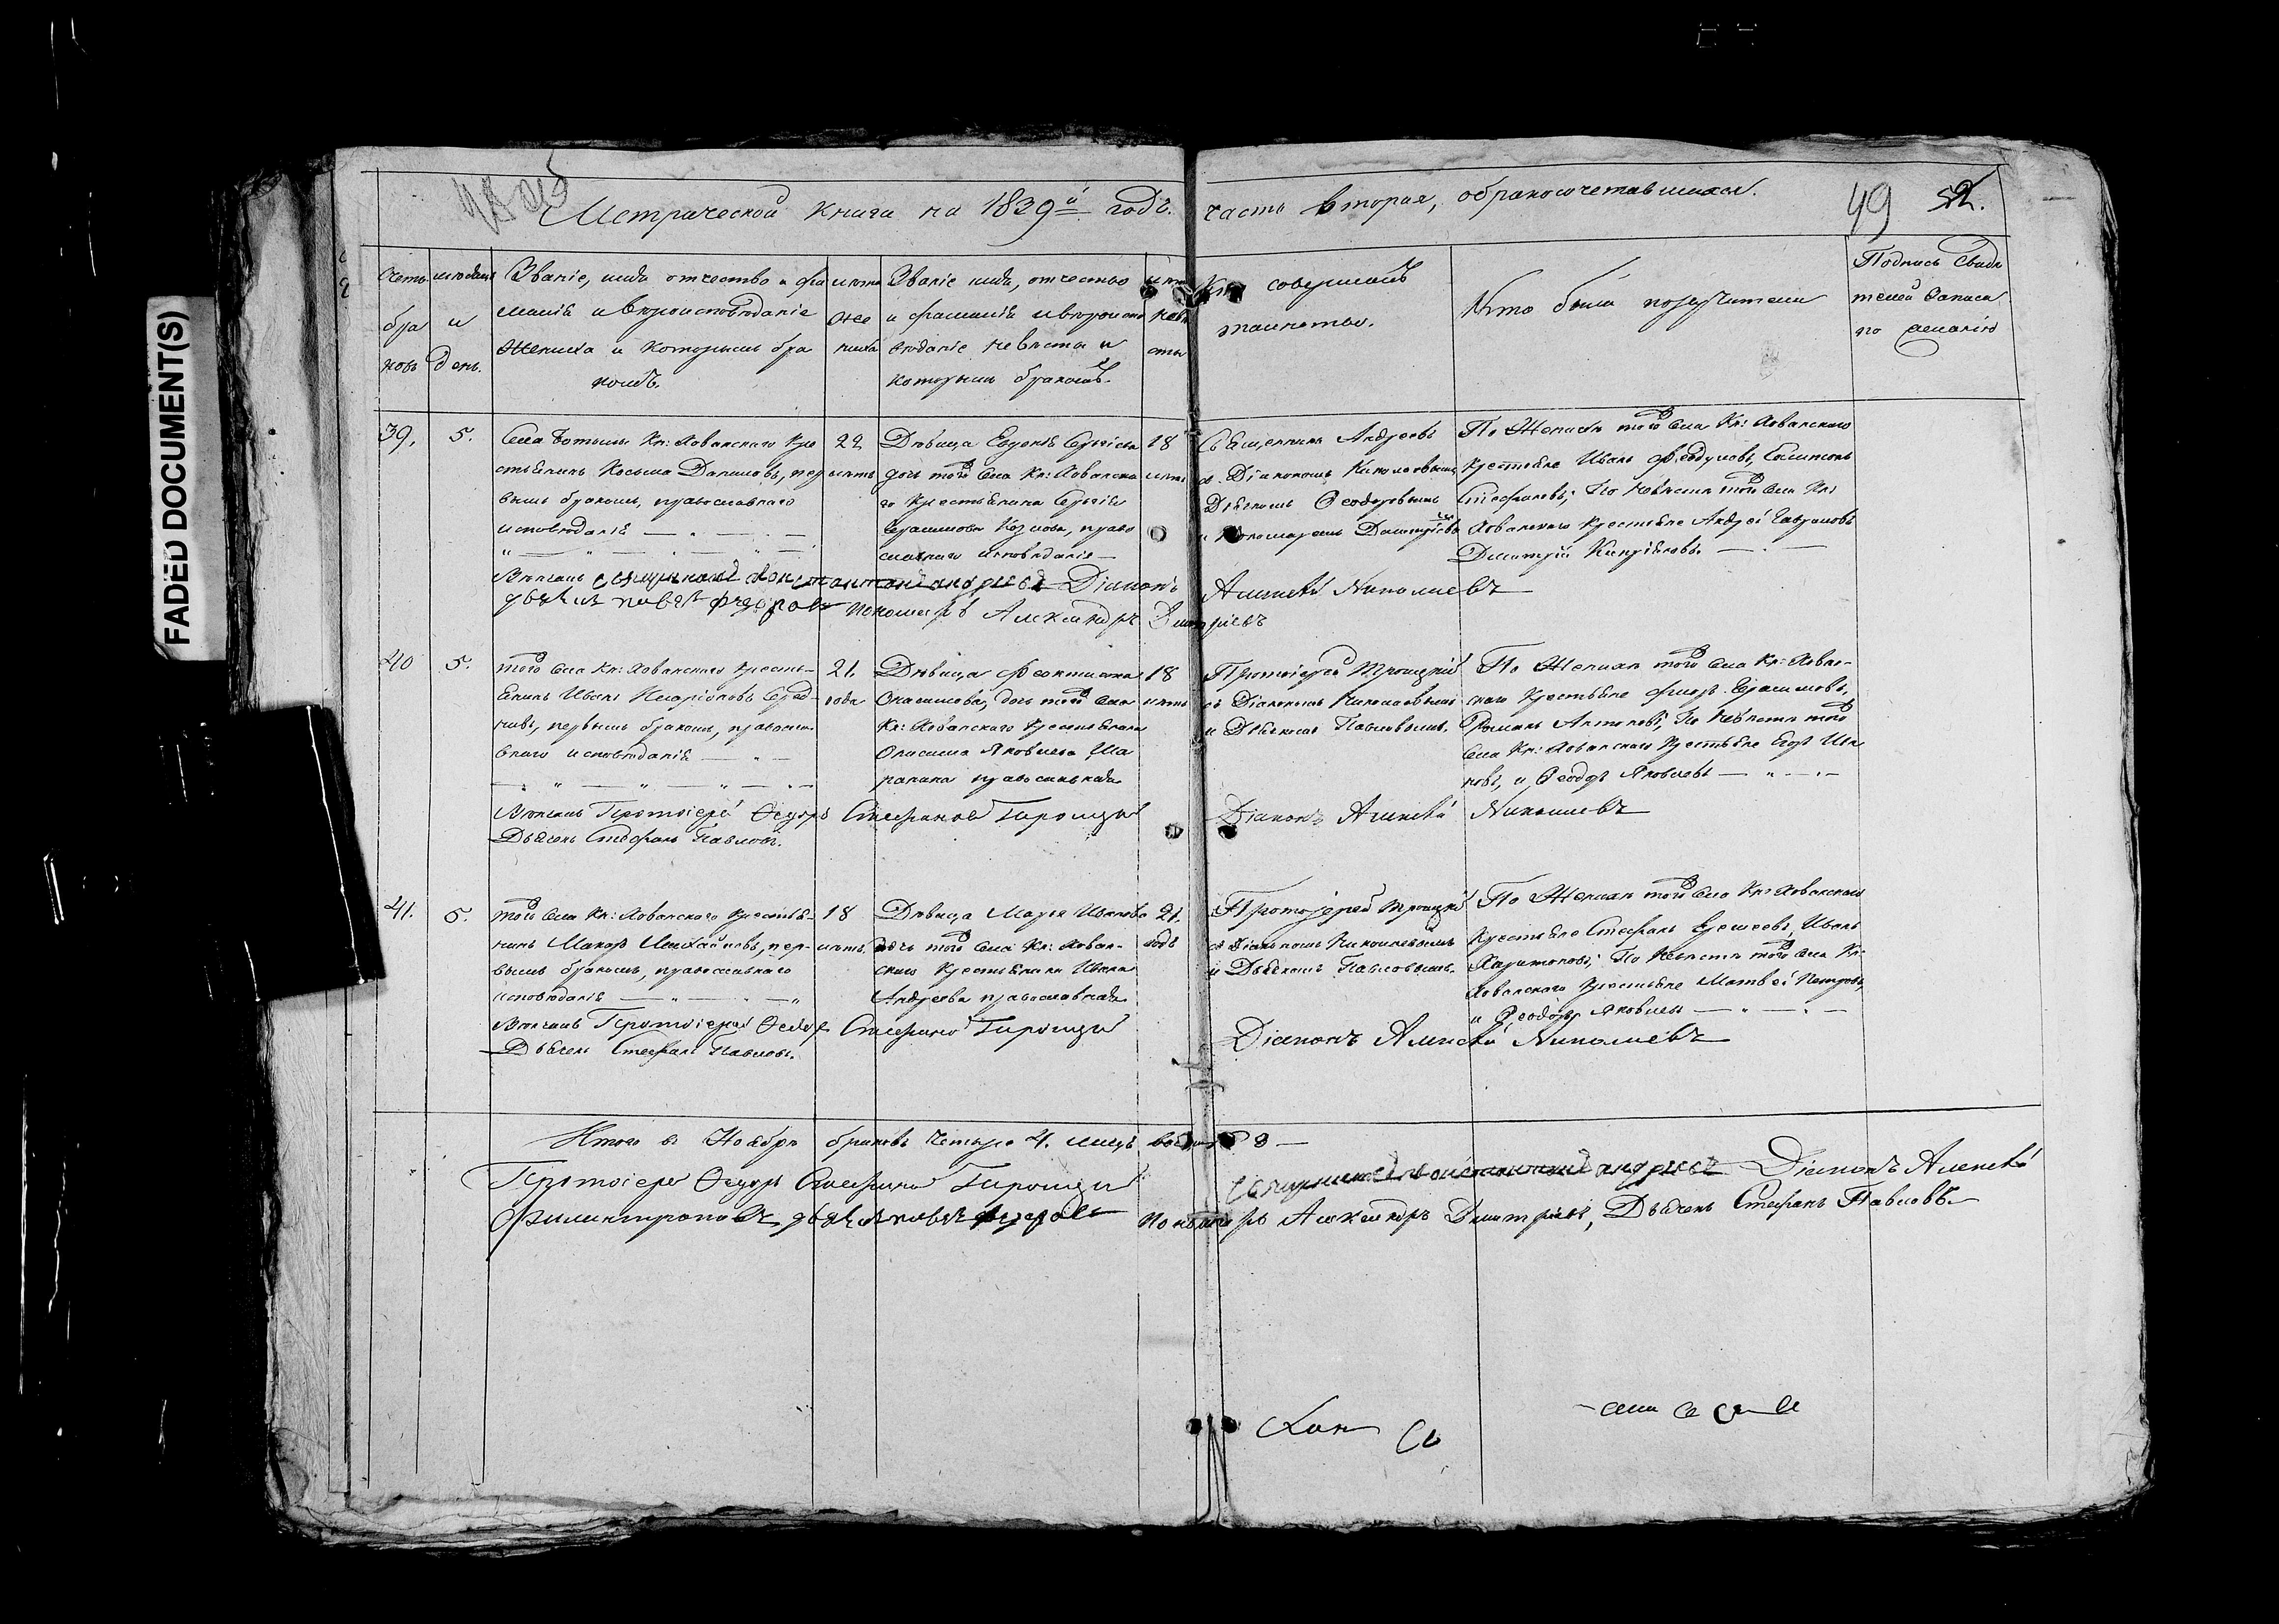 FADED DOCUMENT(S)
Метрической книги на 1839й годъ. часть вторая, обракосочетавшихся. 49
Счетъ браковъ
мѣсяцъ и день.
Званіе, имя отчество и фамилія и вѣроисповѣданіе Жениха и которымъ бракомъ.
лѣта жениха
Званіе имя, отчество и фамилія и вѣроисповѣданіе невѣсты и которымъ бракомъ.
лѣта невѣсты
Кто совершалъ таинство.
Кто были поручители
Подпись Свидѣтелей записи по желанію
39. 5.
Села Кн: Хованскаго Кре
стьянинъ Косьма Даниловъ, пер
вымъ бракомъ, православнаго
исповѣданія
22
лѣтъ
Дѣвица Евдокія Сергіева
дочь того села Кн: Хованска
го Крестьянина Сергія
Герасимова право
славнаго исповѣданія
18
лѣтъ
Священникъ Андреевъ
съ Діакономъ Николаевымъ
Дьячкомъ Феодоровымъ
и пономаремъ Димитріевымъ
По Женихѣ того села Кн: Хованскаго
крестьяне Иванъ Федуловъ,
Стефановъ; По Невѣстѣ того села Кн:
Хованскаго Крестьяне Андрей Гавриловъ
Дмитрій Кипріяновъ.
Вѣнчалъ священникъ Константинъ Андреевъ Діаконъ Алексѣй Николаевъ
дьячекъ Федоровъ пономарь Александръ Дмитріевъ
40 5.
того села Кн: Хованскаго Кресть-
янинъ Иванъ Иларіоновъ
первымъ бракомъ, правосла
внаго исповѣданія
21.
года
Дѣвица Феоктиста
Онисимова, дочь того села
Кн: Хованскаго Крестьянина
Онисима Яковлева
православная
18
лѣтъ
Протоіерей Троицкій
съ Діакономъ Николаевымъ
и Дьячкомъ Павловымъ.
По Женихѣ того села Кн: Хован-
скаго Крестьяне Герасимовъ,
Романъ Антоновъ; По Невѣстѣ того
села Кн: Хованскаго Крестьяне Егоръ Ива
новъ, и Феодоръ Яковлевъ
Вѣнчалъ Протоіерей Ѳедоръ Стефановъ Троицкій Діаконъ Алексѣй Николаевъ
Дьячекъ Стефанъ Павловъ.
41. 5.
того села Кн: Хованскаго Крестья-
нинъ Макаръ Михайловъ, пер-
вымъ бракомъ, православнаго
исповѣданія
18
лѣтъ.
Дѣвица Марья Иванова
дочь того села Кн: Хован-
скаго Крестьянина Ивана
Андреева православная
21.
годъ
Протоіерей Троицкій
съ Діакономъ Николаевымъ
и Дьячкомъ Павловымъ.
По Женихѣ того села Кн: Хованскаго
Крестьяне Стефанъ Еремеевъ, Иванъ
Харитоновъ; По Невѣстѣ того села Кн:
Хованскаго Крестьяне Матвей Петровъ,
и Феодоръ Яковлевъ
Вѣнчалъ Протоіерей Ѳедоръ Стефановъ Троицкій Діаконъ Алексѣй Николаевъ
Дьячекъ Стефанъ Павловъ.
Итого въ Ноябрѣ браковъ четыре 4. лицъ восемь 8
Протоіерей Ѳедоръ Стефановъ Троицкій священникъ Константинъ Андреевъ Діаконъ Алексѣй
дьячекъ Федоровъ пономарь Александръ Дмитріевъ, Дьячекъ Стефанъ Павловъ